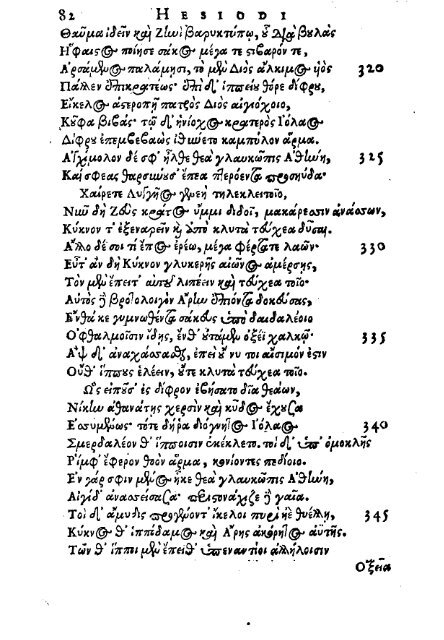 82 HESIODI
Θαῦμα ἰδεῖν καὶ Ζηνὶ βαρυκτύπῳ, οὗ διὰ βουλὰς
Ηφαιστος ποίησε σάκος μέγα τε στιβαρόν τε,
Αρσάμενος παλάμησι, τὸ μὲν Διὸς ἄλκιμος υἱὸς 320
Πάλλεν ἐπικρατέως· ἐπὶ δ' ἱππείου θόρε δίφρου,
Εἴκελος ἀστεροπῇ πατρὸς Διὸς αἰγιόχοιο,
Κοῦφα βιβάς· τῷ δ' ἡνίοχος κρατερὸς Ιόλαος
Δίφρου ἐπεμβεβαὼς ἰθύνετο καμπύλον ἅρμα.
Αγχίμολον δέ σφ' ἦλθε θεὰ γλαυκῶπις Αθήνη, 325
Καί σφεας θαρσύνουσ' ἔπεα πτερόεντα προσηύδα·
Χαίρετε Λυγγῆος γενεὴ τηλεκλειτοῖο,
Νῦν δὴ Ζεὺς κράτος ὔμμι διδοῖ, μακάρεσσιν ἀνάσσων,
Κύκνον τ' ἐξεναρεῖν καὶ ἀπὸ κλυτὰ τεύχεα δῦσαι.
Αλλο δέ σοι τί ἔπος ἐρέω, μέγα φέρτατε λαῶν· 330
Εὖτ' ἂν δὴ Κύκνον γλυκερῆς αἰῶνος ἀμέρσης,
Τὸν μὲν ἔπειτ' αὐτοῦ λιπέειν καὶ τεύχεα τοῖο·
Αὐτὸς δὲ βροτολοιγὸν Αρην ἐπιόντα δοκεύσας,
Ενθά κε γυμνωθέντα σάκους ὑπὸ δαιδαλέοιο
Οφθαλμοῖσιν ἴδης, ἔνθ' οὐτάμεν ὀξέϊ χαλκῷ· 335
Αψ δ' ἀναχάσσασθαι, ἐπεὶ οὔ νυ τοι αἴσιμόν ἐστιν
Οὔθ' ἵππους ἑλέειν, οὔτε κλυτὰ τεύχεα τοῖο.
Ως εἰποῦσ' ἐς δίφρον ἐβήσατο δῖα θεάων,
Νίκην ἀθανάτης χερσὶν καὶ κῦδος ἔχουσα
Εσσυμένως· τότε δή ῥα διόγνητος Ιόλαος 340
Σμερδαλέον θ' ἵπποισιν ἐκέκλετο. τοὶ δ' ὑπ' ὁμοκλῆς
Ρίμφ' ἔφερον θοὸν ἅρμα, κονίοντες πεδίοιο.
Εν γάρ σφιν μένος ἧκε θεὰ γλαυκῶπις Αθήνη,
Αἰγίδ' ἀνασσείσασα· περιστονάχιζε δὲ γαῖα.
Τοὶ δ' ἄμυδις προγένοντ' ἴκελοι πυρὶ ἠὲ θυέλλη, 345
Κύκνος θ' ἱππόδαμος καὶ Αρης ἀκόρητος ἀϋτῆς.
Τῶν θ' ἵπποι μὲν ἔπειθ' ὑπεναντίοι ἀλλήλοισιν
Οξεῖα